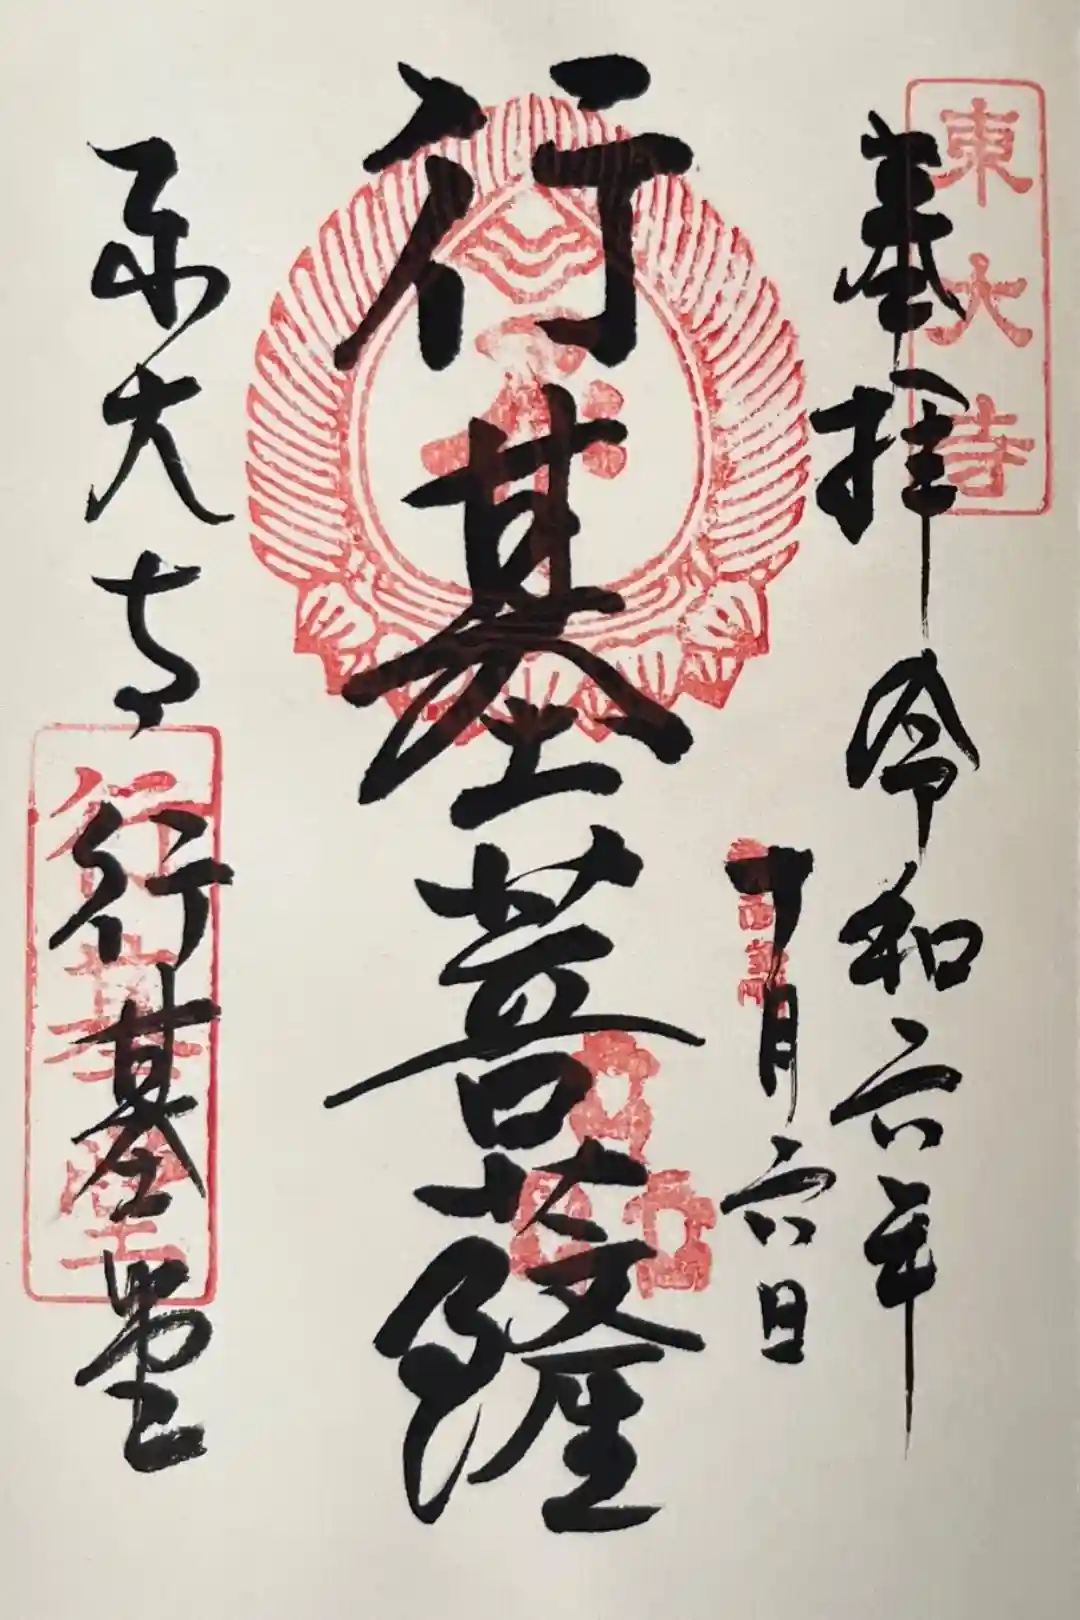 東大寺
奉拝 令和六年
十月六日
行基菩薩
東大寺 行基堂
行基堂